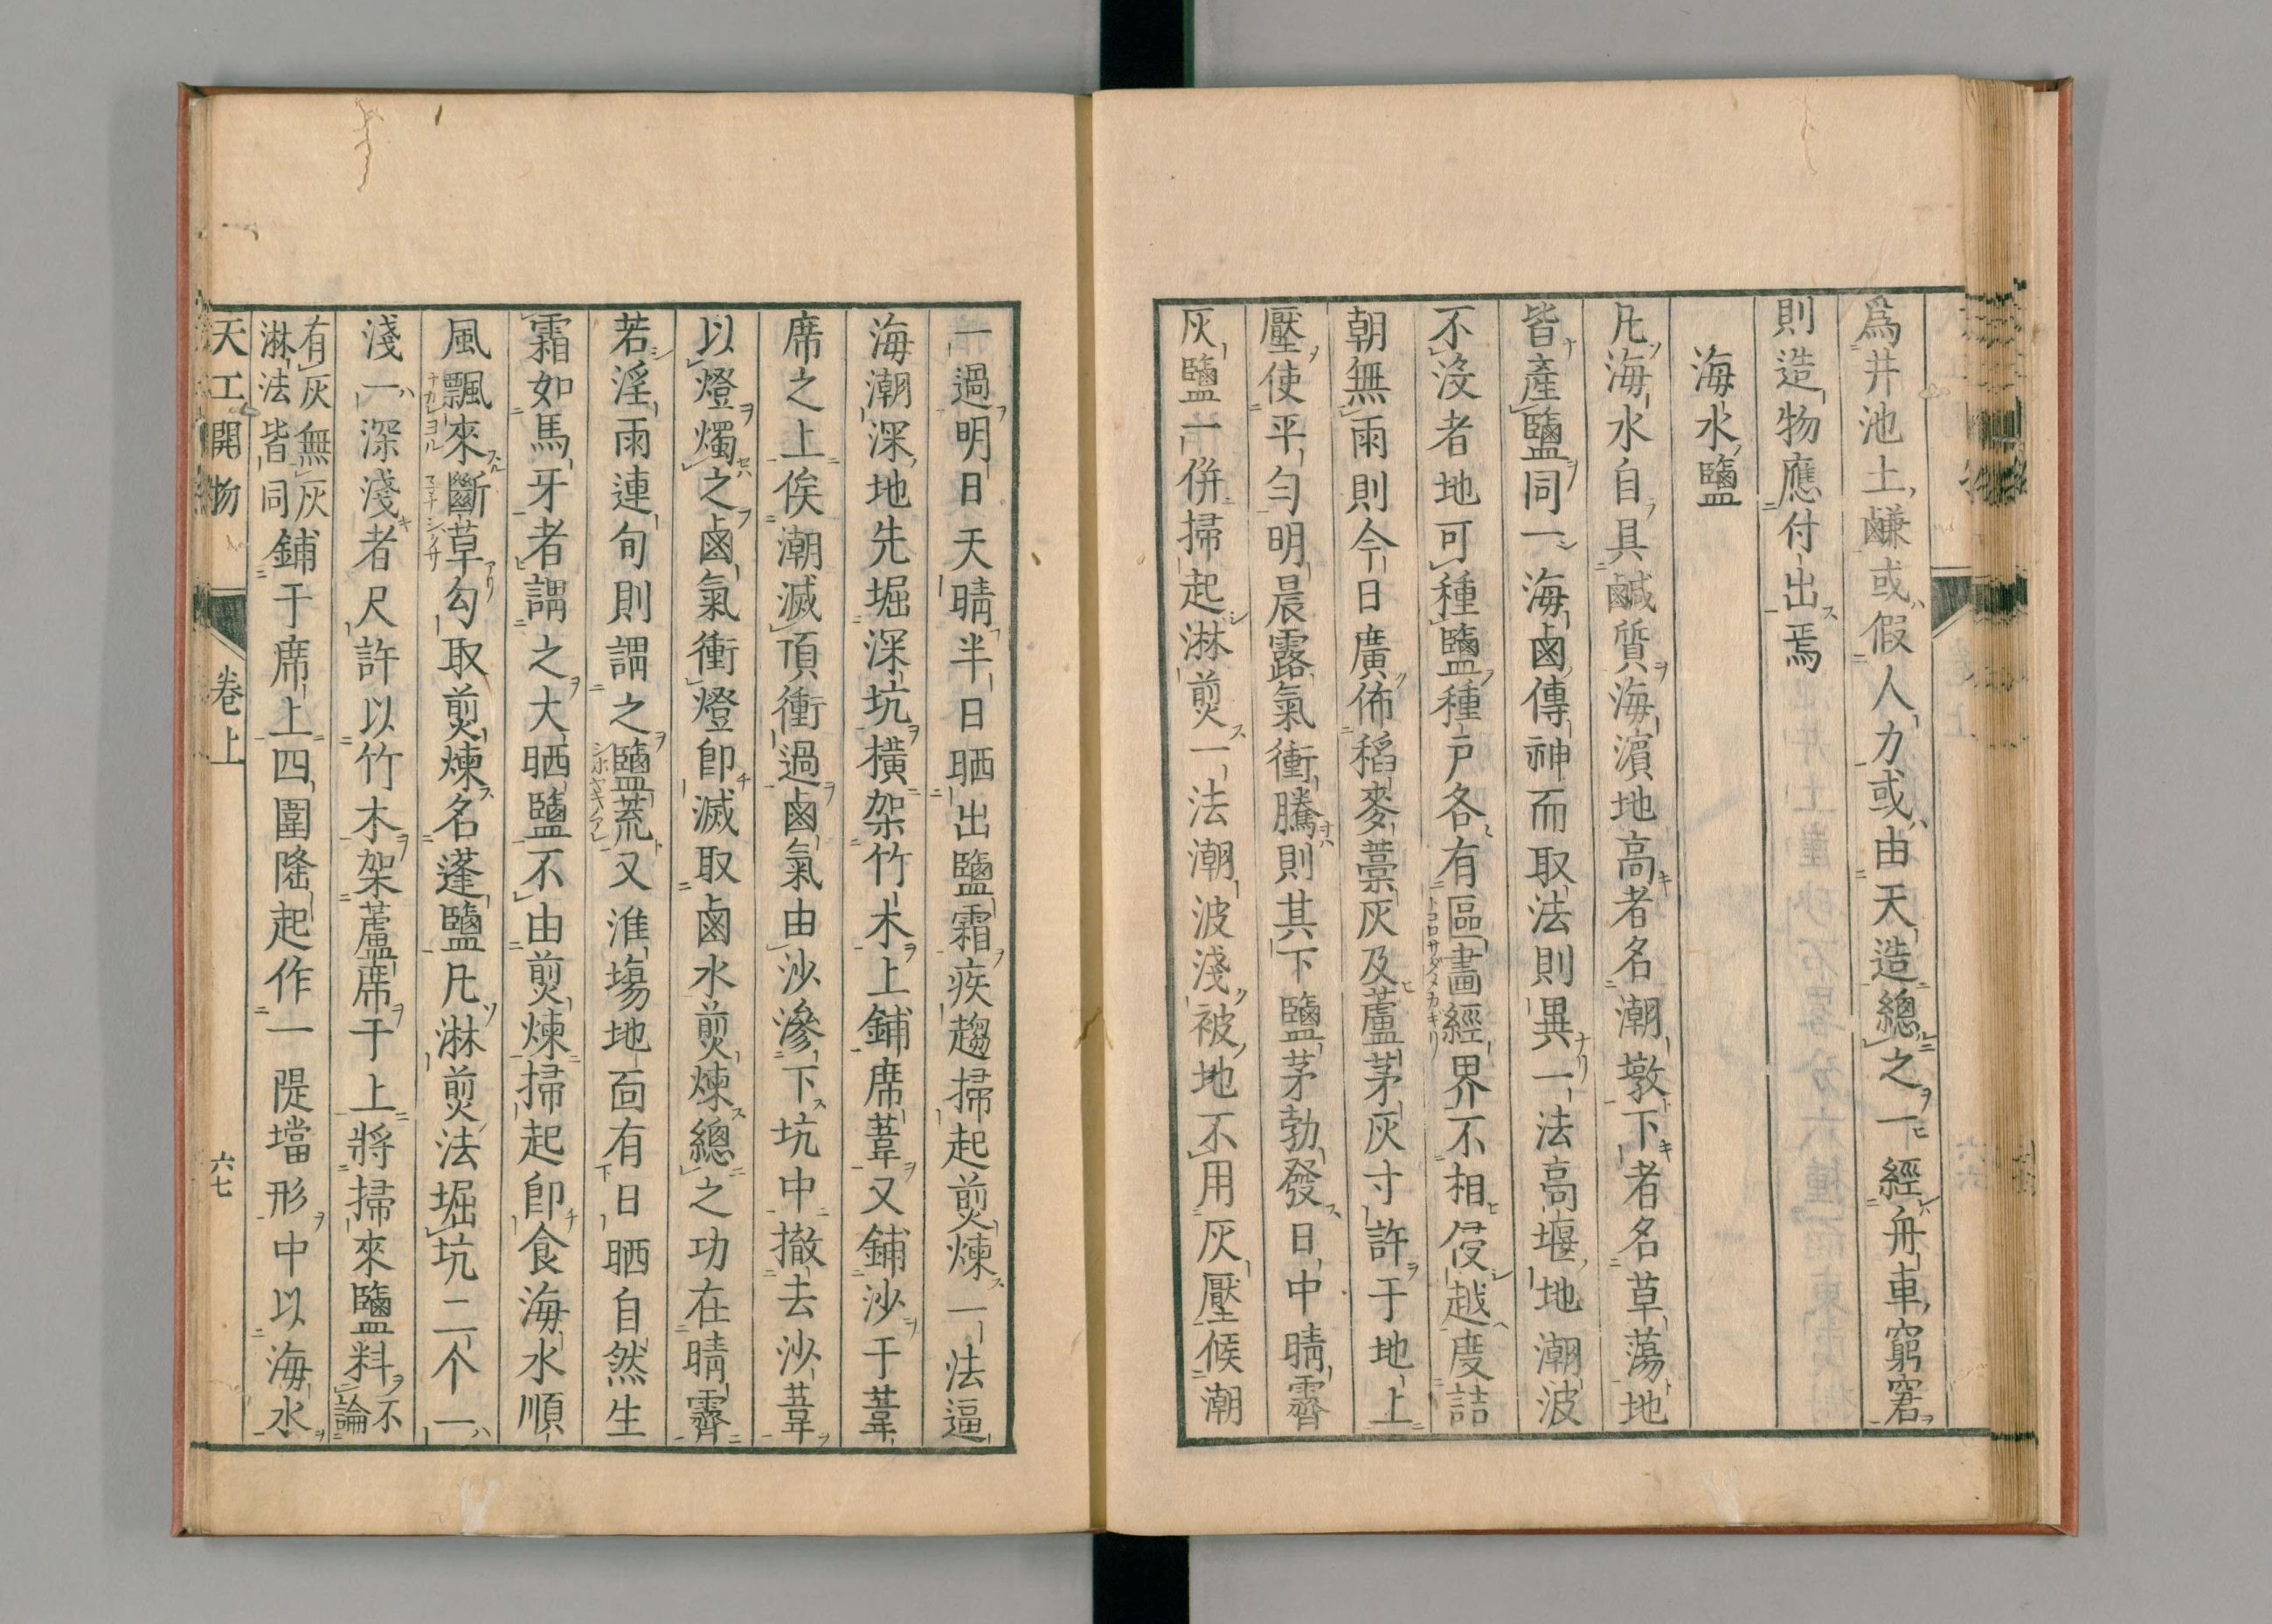 爲井池土鹻或假人力或由天造總之一經舟車窮窘
則造物應付出焉
海水鹽
凡海水自具鹹質海濱地高者名潮墩下者名草蕩地
皆產鹽同一海鹵傳神而取法則異一法高堰地潮波
不沒者地可種鹽種戶各有區畫經界不相侵越度詰
朝無雨則今日廣佈稻麥藁灰及蘆茅灰寸許于地上
壓使平勻明晨露氣衝騰則其下鹽茅勃發日中晴霽
灰鹽一併掃起淋煎一法潮波淺被地不用灰壓候潮
一過明日天晴半日晒出鹽霜疾趨掃起煎煉一法逼
海潮深地先堀深坑橫架竹木上鋪席葦又鋪沙于葦
席之上俟潮滅頂衝過鹵氣由沙滲下坑中撤去沙葦
以燈燭之鹵氣衝燈卽滅取鹵水煎煉總之功在晴霽
若淫雨連旬則謂之鹽荒又淮塲地靣有日晒自然生
霜如馬牙者謂之大晒鹽不由煎煉掃起卽食海水順
風飄來斷草勾取煎煉名蓬鹽凡淋煎法堀坑二个一
淺一深淺者尺許以竹木架蘆席于上將掃來鹽料不論
有灰無灰淋法皆同鋪于席上四圍隆起作一隄壋形中以海水
天工開物 卷上 六七